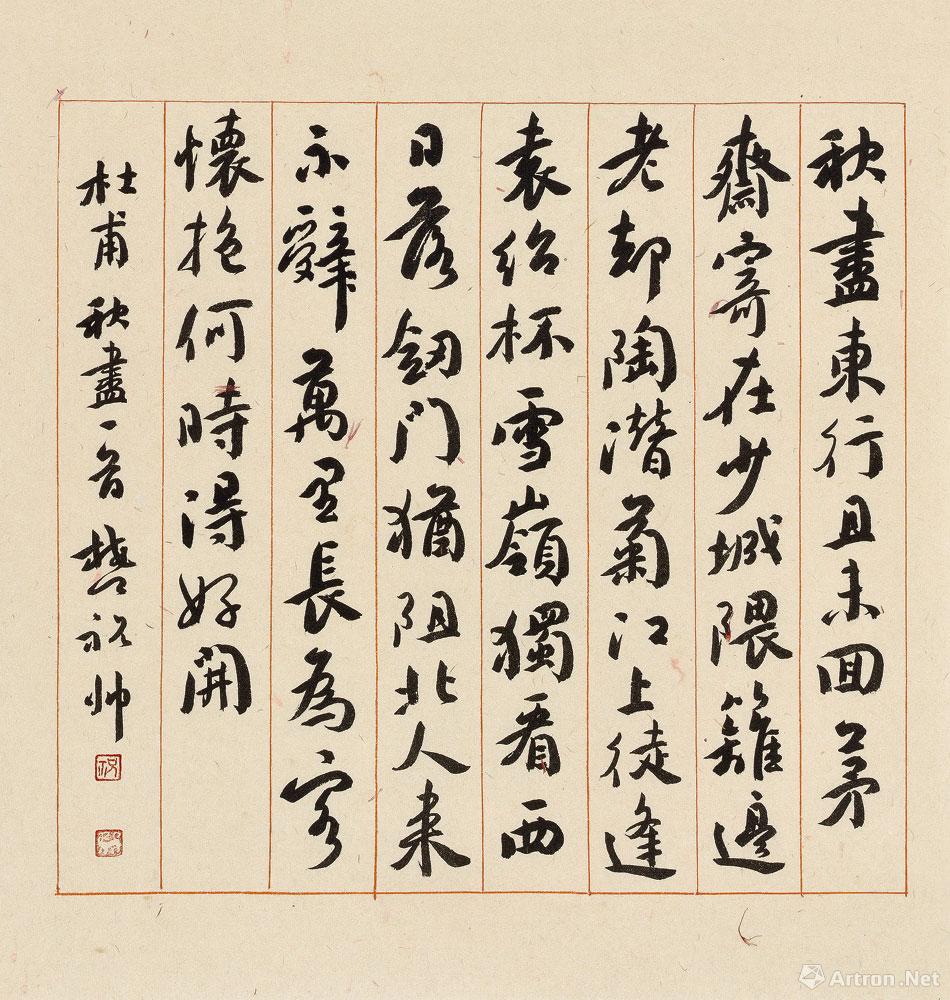 秋盡東行且未回茅
齋寄在少城隈籬邊
老却陶潛菊江上徒逢
袁紹杯雪嶺獨看西
日落劒門猶阻北人来
不辭萬里長為客
懷抱何時得好開
杜甫秋盡一首 楷祝帅
Artron.Net